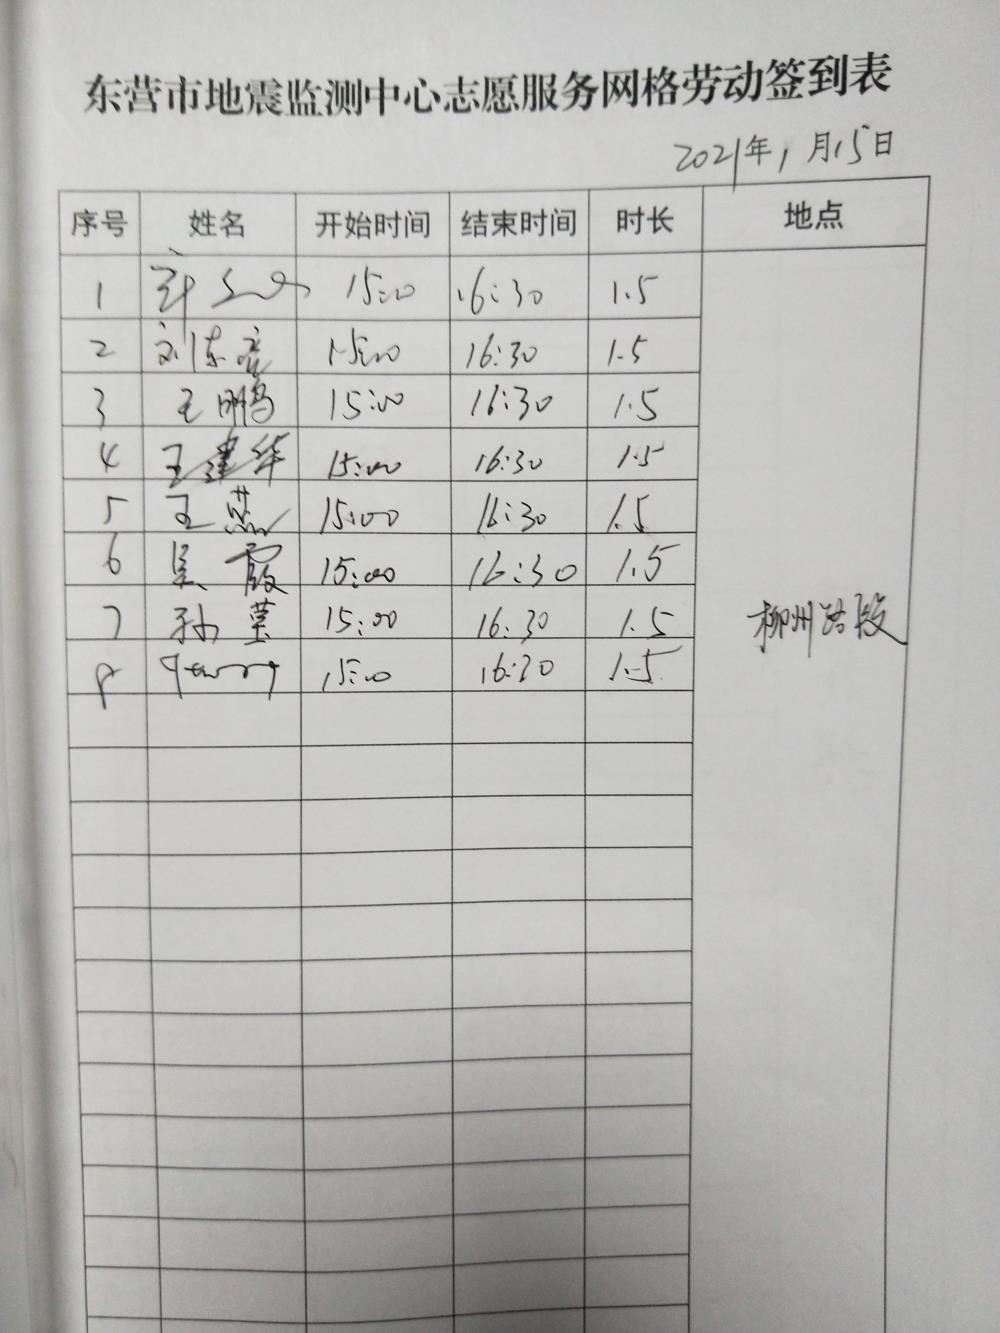 东营市地震监测中心志愿服务网格劳动签到表
2021年1月15日
序号 姓名 开始时间 结束时间 时长 地点
1 15:00 16:30 1.5
2 刘 15:00 16:30 1.5
3 王鹏 15:00 16:30 1.5
4 王建华 15:00 16:30 1.5
5 王燕 15:00 16:30 1.5
6 吴霞 15:00 16:30 1.5
7 孙莹 15:00 16:30 1.5 柳州路段
8 15:00 16:30 1.5